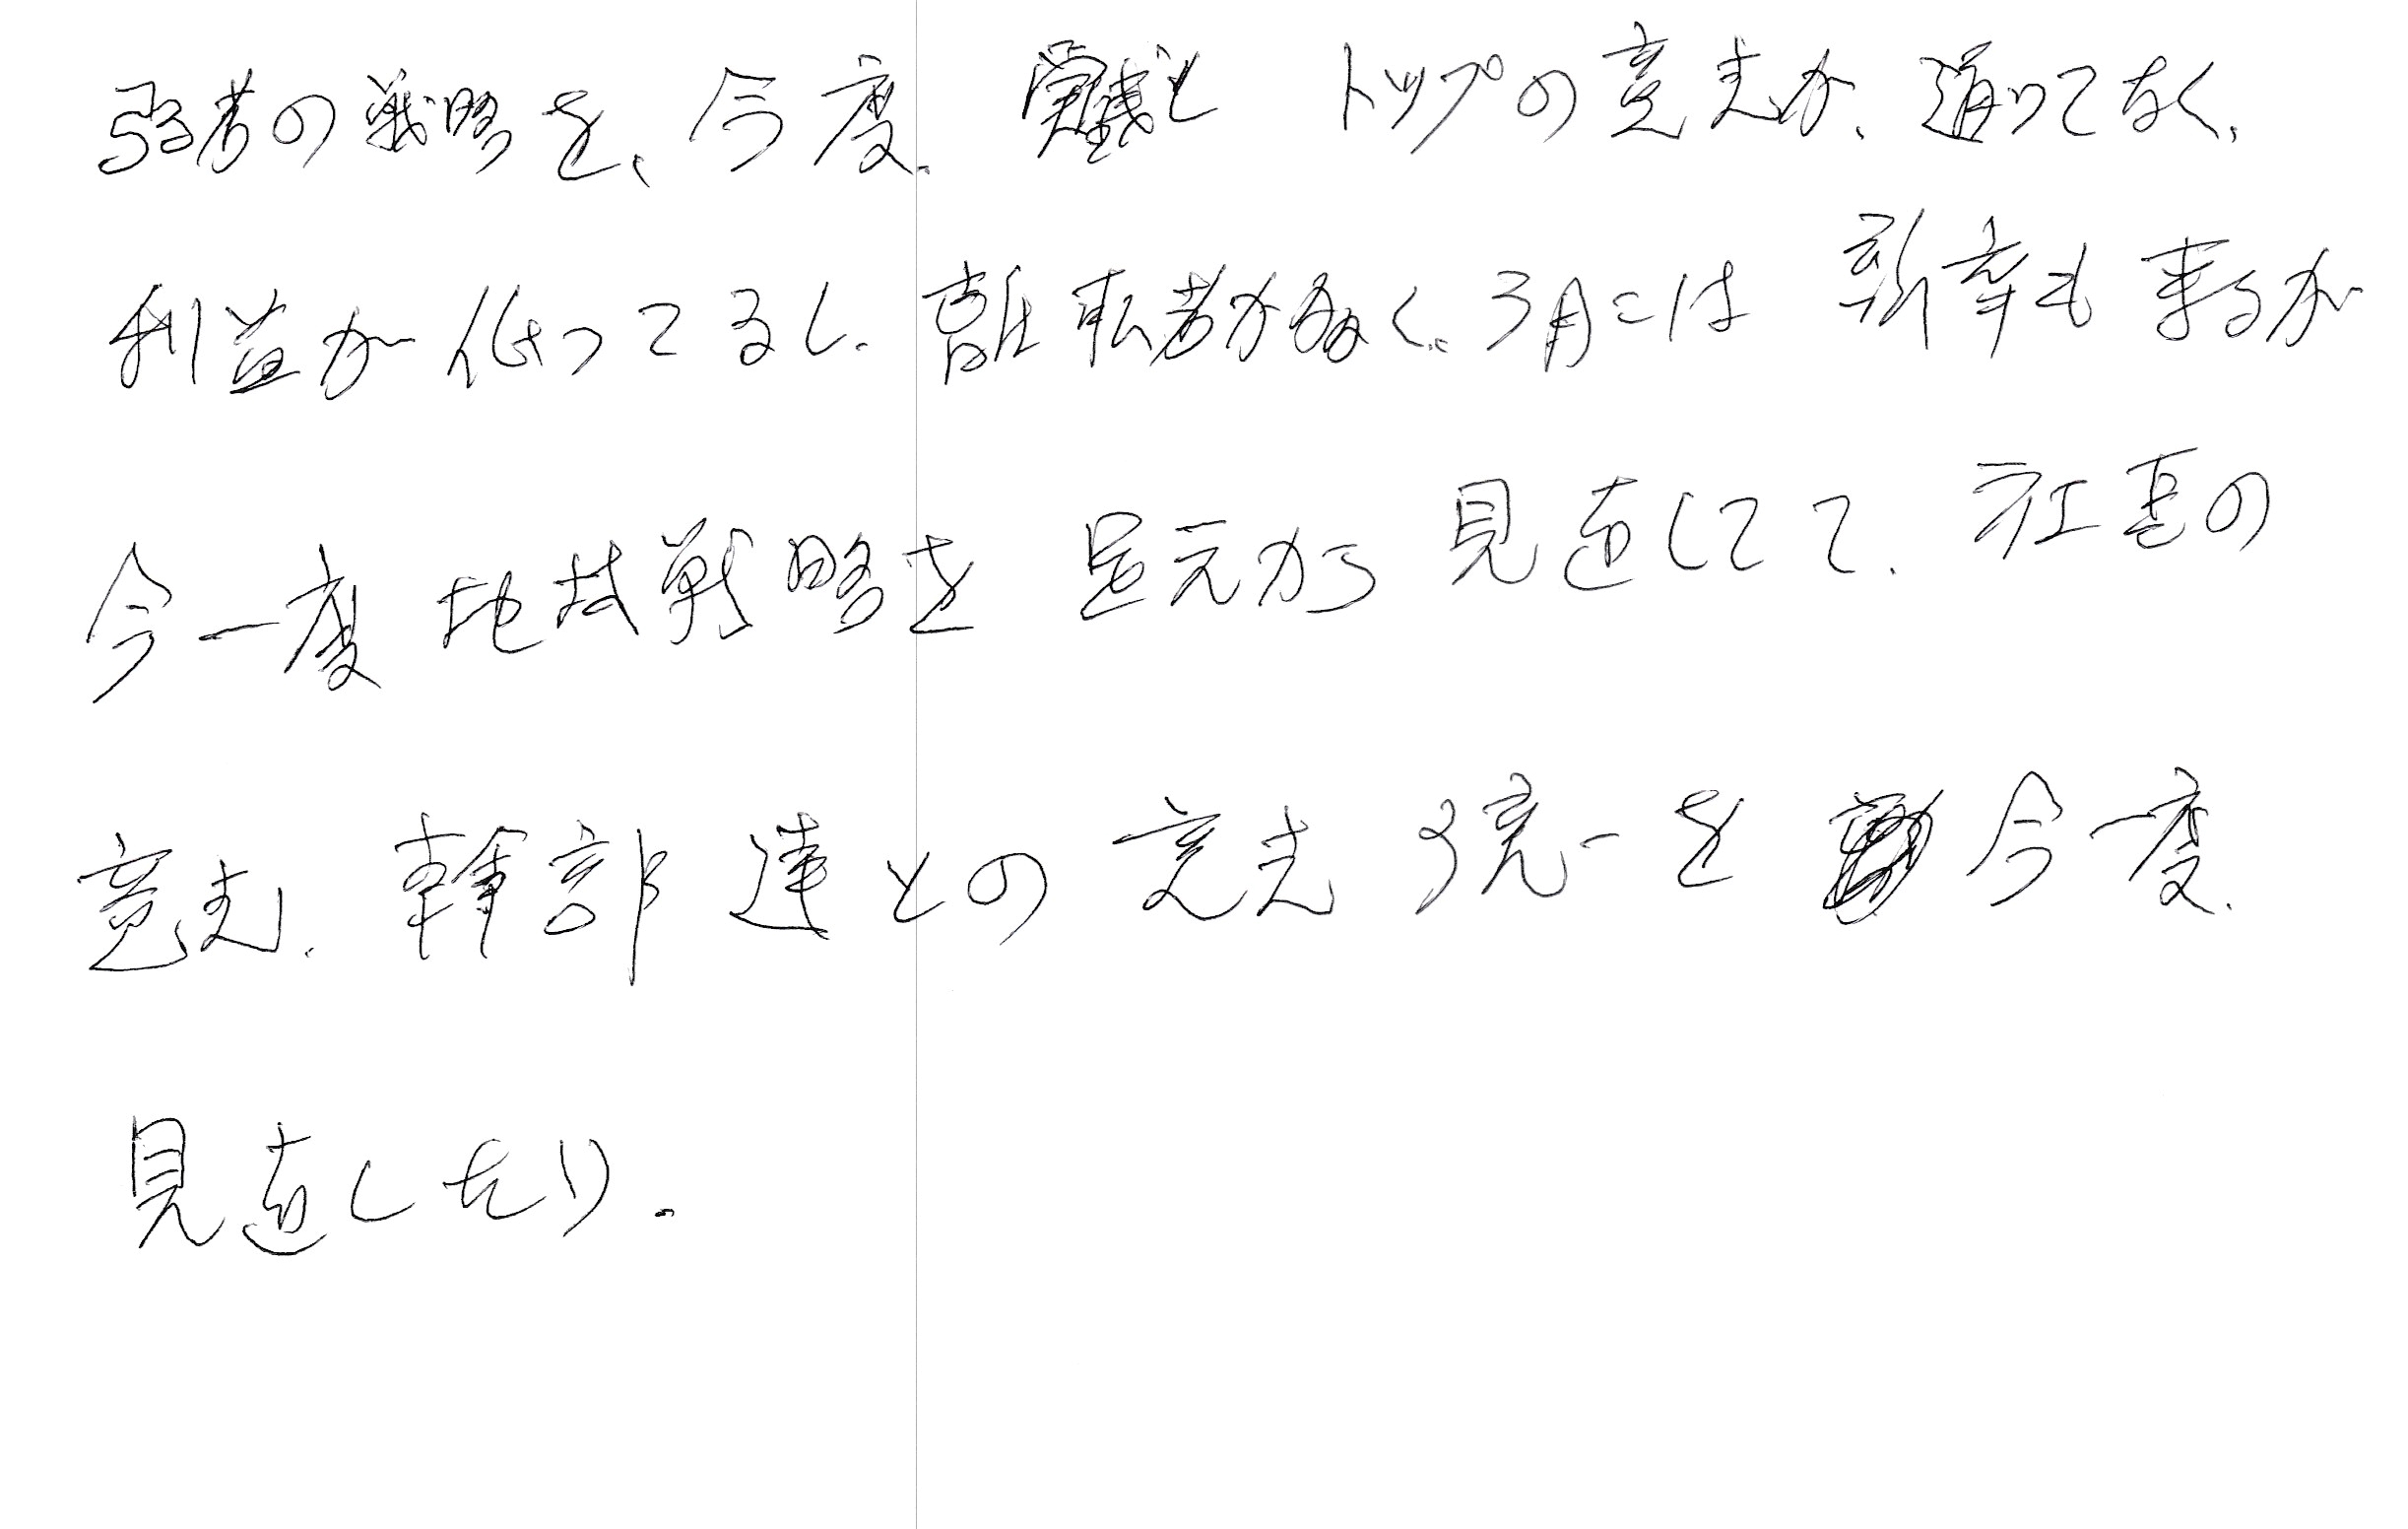 弱者の戦略を、今度、実践し トップの意志が、通ってなく、
利益が低ってるし、離転者が多く、3月には 新卒も来るが
今一度 地域戦略を 足元から 見直してて、社長の
意志、幹部達との意志統一を 今一度、
見直したり。